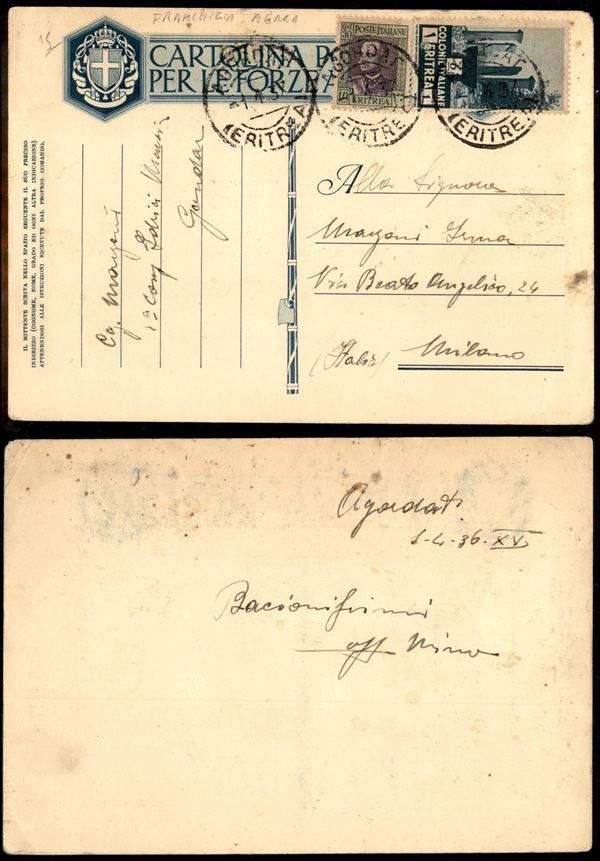 FRANCHIGIA AEREA
CARTOLINA P
PER LE FORZE A
POSTE ITALIANE
ERITREA
COLONIE ITALIANE
1 ERITREA 1
AGORDAT
(ERITREA)
(ERITREA)
(ERITREA)
IL MITTENTE SCRIVA NELLO SPAZIO SEGUENTE IL SUO PRECISO
INDIRIZZO (COGNOME, NOME, GRADO ED OGNI ALTRA INDICAZIONE)
ATTENENDOSI ALLE ISTRUZIONI RICEVUTE DAL PROPRIO COMANDO.
Magoni
Gondar
Alla Signora
Magoni Irma
Via Beato Angelico, 24
(Italia) Milano
Agordat
1-4-36. XV
Bacionissimi
aff Nino